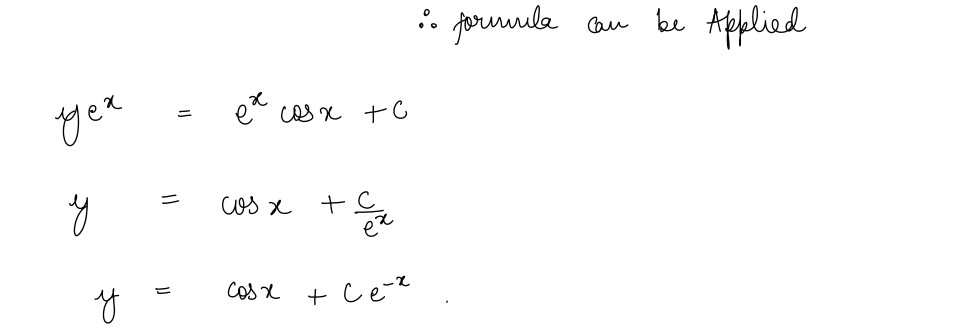 ∴ formula can be Applied
ye^x = e^x cos x + c
y = cos x + c/e^x
y = cos x + c e^{-x} .